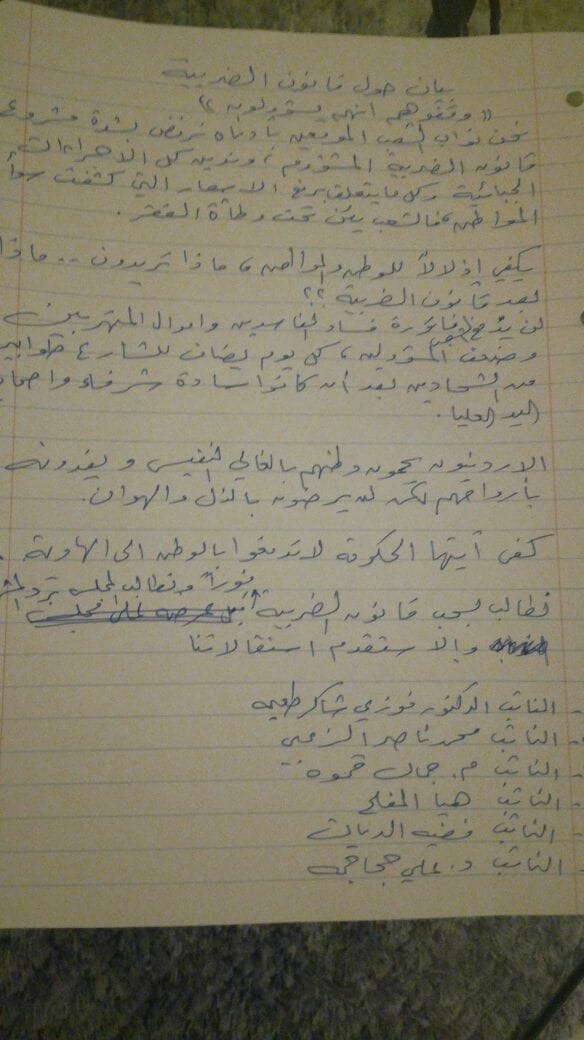 بيان حول قانون الضريبة
"وقفوهم انهم مسؤولون"
نحن نواب الشعب الموقعين بأدناه نرفض بشدة مشروع
قانون الضريبة المشؤوم، وندين كل الاجراءات
الجبائية وكل ما يتعلق برفع الاسعار التي كشفت سوأ
المواطن، فالشعب يئن تحت وطأة الفقر.
يكفي إذلالاً للوطن والمواطن، ماذا تريدون .. ماذا
بعد قانون الضريبة ؟؟
لن يدفع فاتورة فساد الفاسدين واموال المتهربين
وضعف المسؤولين، كل يوم يضاف للشارع طوابير
من الشحادين بعد أن كانوا سادة شرفاء واصحاب
اليد العليا.
الاردنيون يحمون وطنهم بالغالي النفيس ويفدونه
بأرواحهم لكن لن يرضوا بالذل والهوان.
كفى أيتها الحكومة لا تدفعوا بالوطن الى الهاوية.
فوراً ونطالب المجلس برد
نطالب بسحب قانون الضريبة
وإلا سنقدم استقالاتنا
- النائب الدكتور فوزي شاكر طعيمه
- النائب محمد ناصر الزعبي
- النائب م. جمال قموه
- النائب هيا المفلح
- النائب فضيه الديات
- النائب د. علي حجاحجه